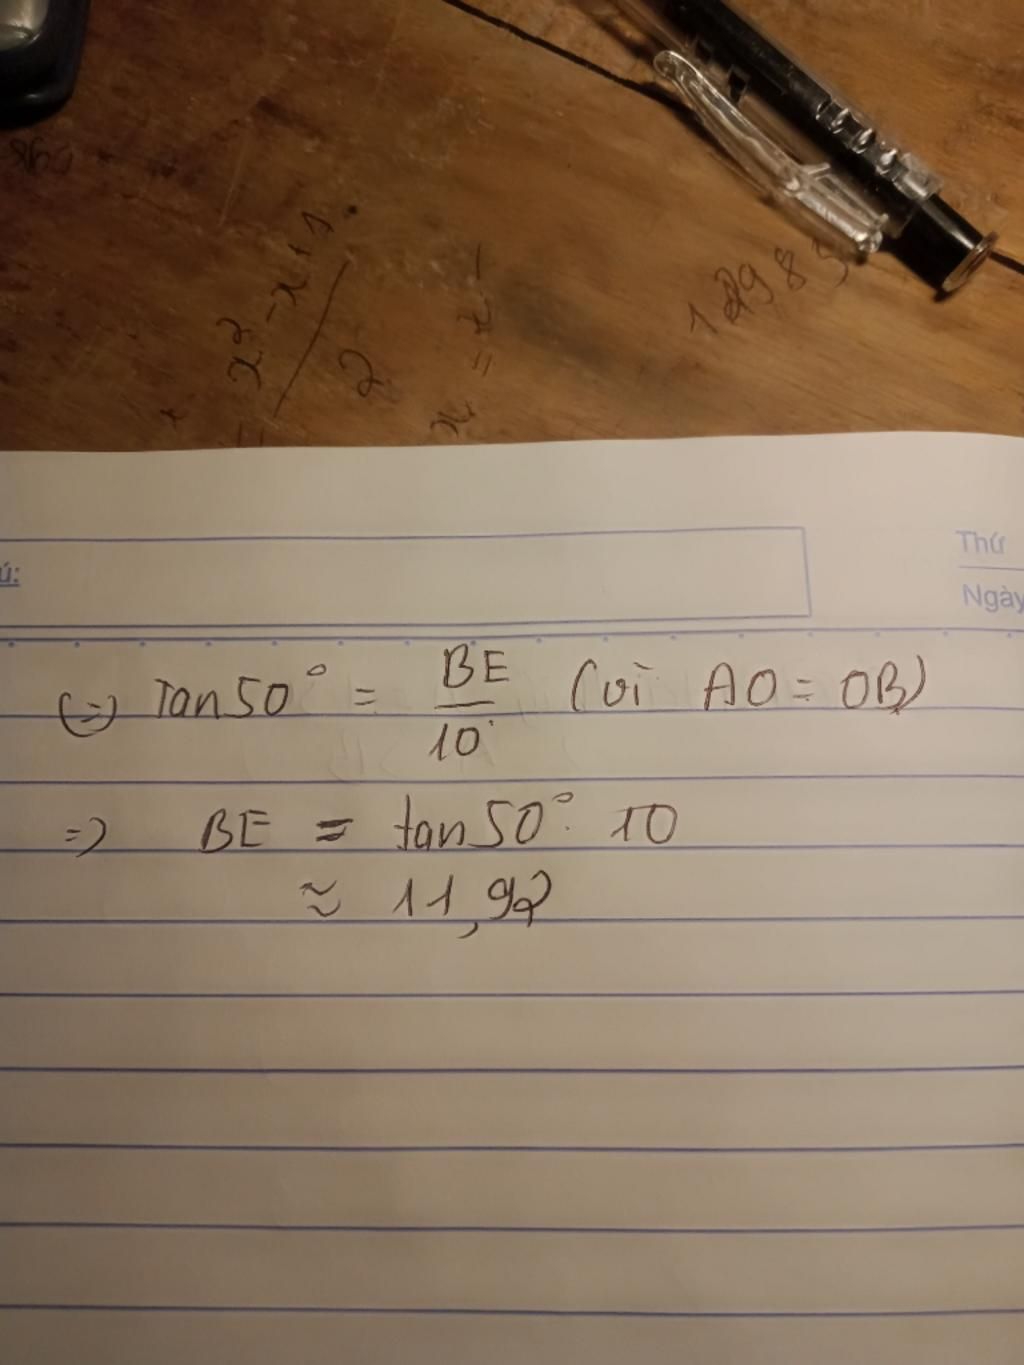 x² - x + 1
=
2
x = x -
ú:
Thứ
Ngày
(=) Tan50° = BE/10 (vì AO = OB)
=) BE = tan50°. 10
≈ 11,92